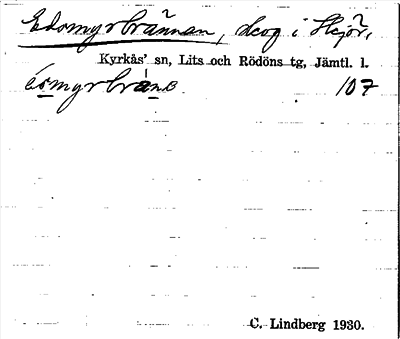 Edomyrbrännan, skog i Skjör,
Kyrkås' sn, Lits och Rödöns tg, Jämtl. l.
éomyrbránn̥ 107
C. Lindberg 1930.